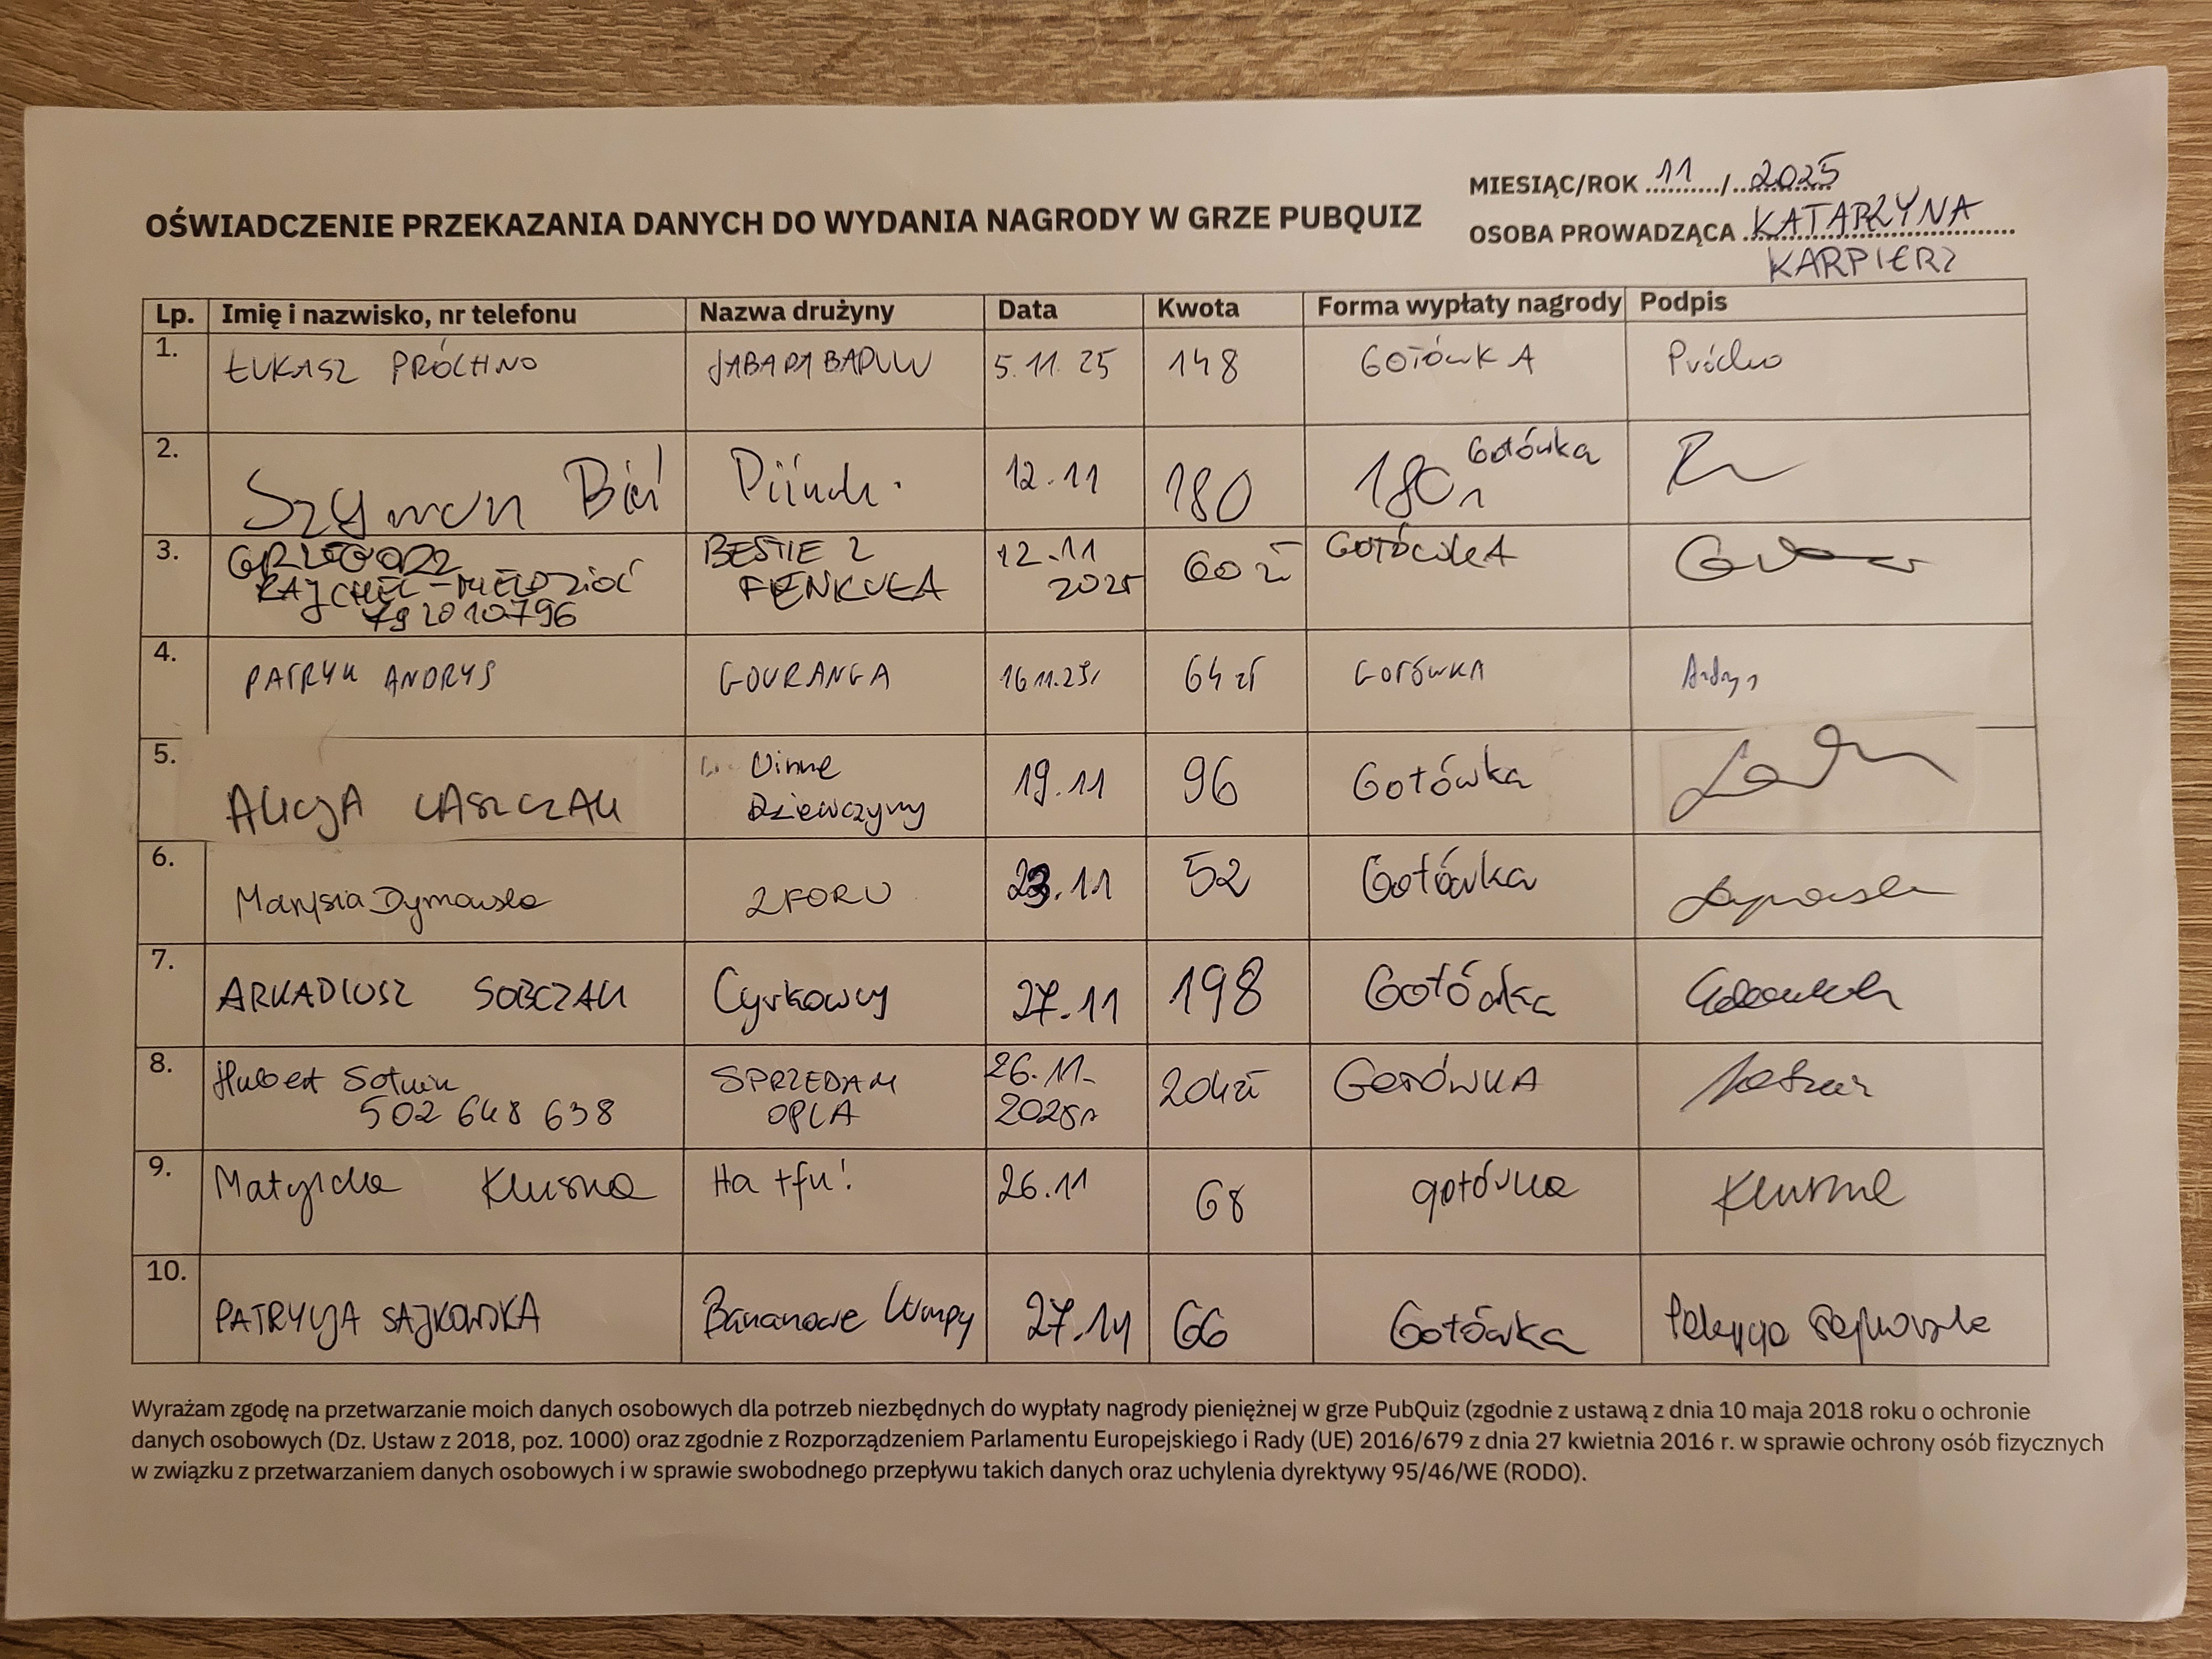 MIESIĄC/ROK 11 / 2025
OŚWIADCZENIE PRZEKAZANIA DANYCH DO WYDANIA NAGRODY W GRZE PUBQUIZ
OSOBA PROWADZĄCA KATARZYNA
KARPIERZ
Lp. Imię i nazwisko, nr telefonu Nazwa drużyny Data Kwota Forma wypłaty nagrody Podpis
1. ŁUKASZ PRÓCHNO 5.11.25 148 GOTÓWKA Próchno
2. Szymon Bień 12.11 180 180 Gotówka
3. GRZEGORZ BESTIE Z 12.11 60 zł GOTÓWKA
FENKUŁA 2025
792010796
4. PATRYK ANDRYS GOURANGA 16.11.25r 64 zł GOTÓWKA Andrys
5. ALICJA LASZCZAK Winne 19.11 96 Gotówka
Dziewczyny
6. Marysia Dymowska 2FORU 23.11 52 Gotówka Dymowska
7. ARKADIUSZ SOBCZAK Cyrkowcy 27.11 198 Gotówka
8. Hubert SPRZEDAM 26.11. 204zł GOTÓWKA
502 648 638 OPLA 2025r
9. Matylda Kluska Ha tfu! 26.11 68 gotówka
10. PATRYCJA SAJKOWSKA Bananowe Lumpy 27.11 66 Gotówka Patrycja Sajkowska
Wyrażam zgodę na przetwarzanie moich danych osobowych dla potrzeb niezbędnych do wypłaty nagrody pieniężnej w grze PubQuiz (zgodnie z ustawą z dnia 10 maja 2018 roku o ochronie
danych osobowych (Dz. Ustaw z 2018, poz. 1000) oraz zgodnie z Rozporządzeniem Parlamentu Europejskiego i Rady (UE) 2016/679 z dnia 27 kwietnia 2016 r. w sprawie ochrony osób fizycznych
w związku z przetwarzaniem danych osobowych i w sprawie swobodnego przepływu takich danych oraz uchylenia dyrektywy 95/46/WE (RODO).